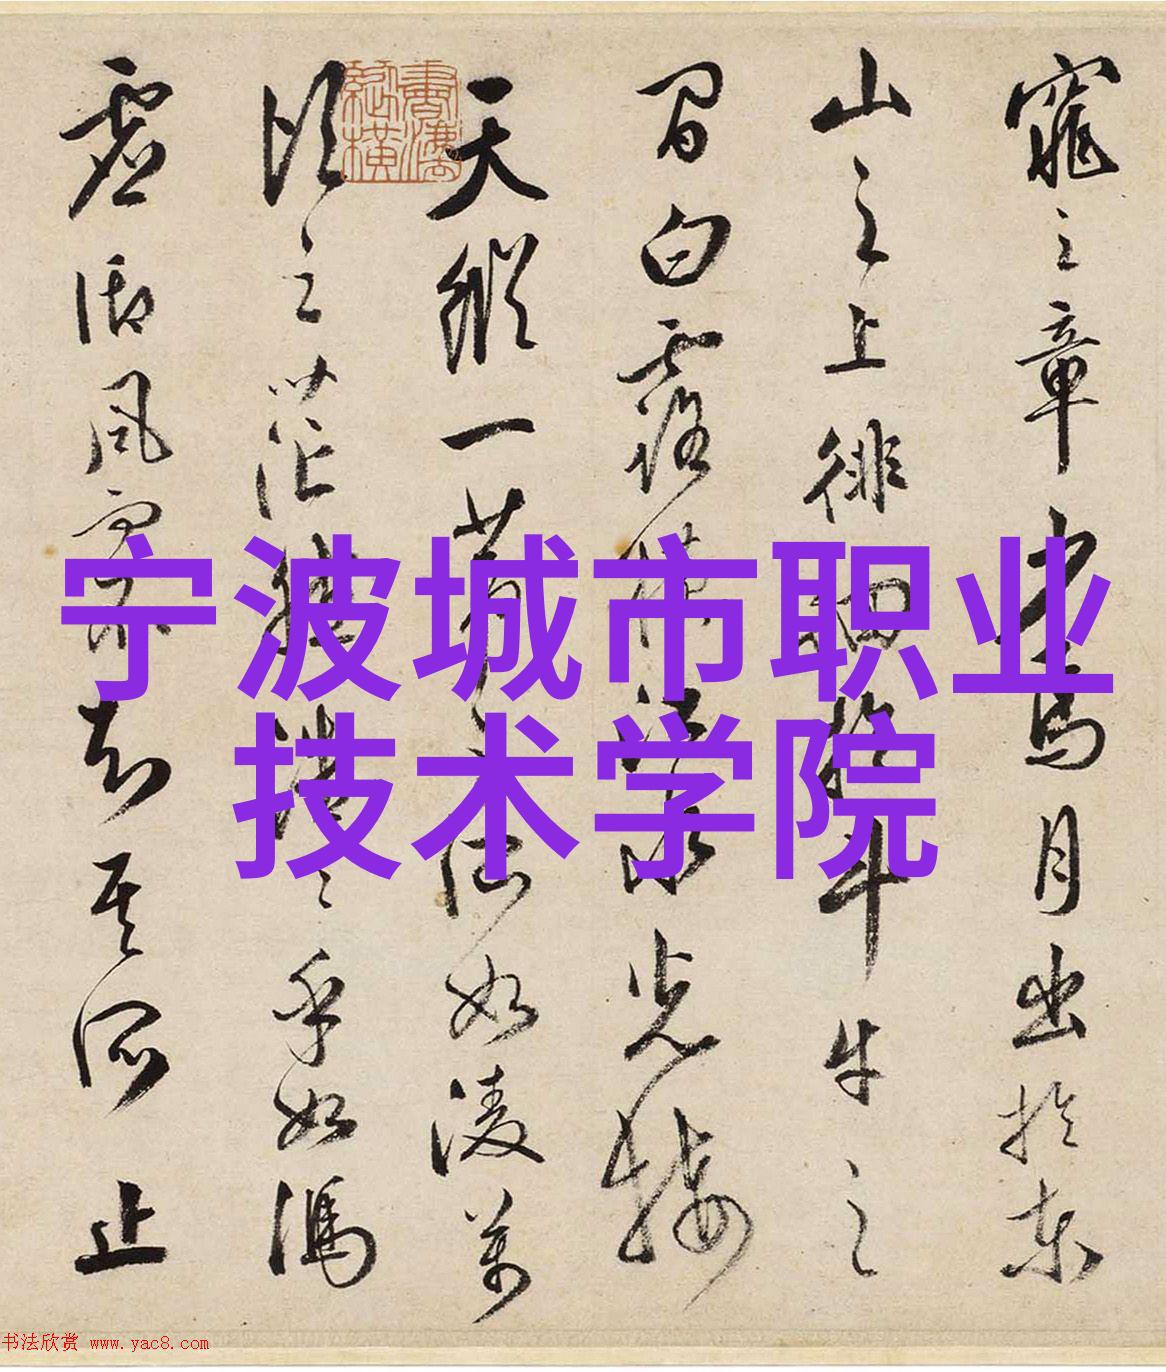 宁波城市职业
技术学院
窕之章少焉月出於東
山之上徘徊於斗牛之
間白露橫江水光接
天縱一葦之所如凌萬
頃之茫然浩〻乎如馮
虛御風而不知其所止
书法欣赏 www.yac8.com